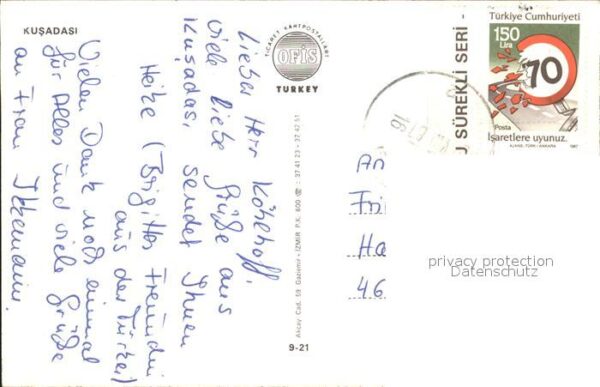 KUŞADASI
Lieber Herr Köhlhoff,
viele liebe Grüße aus
Kuşadası sendet Ihnen
Heike (Brigittes Freundin
aus der Türkei)
Vielen Dank noch einmal
für Alles und viele Grüße
an Frau
TİCARET KARTPOSTALLARI
OFİS
TURKEY
Akçay Cad. 59 Gaziemir - İZMİR P.K. 600 ☏ : 37 41 23 - 37 42 51
9-21
U SÜREKLİ SERİ -
Türkiye Cumhuriyeti
150
Lira
70
Posta
İşaretlere uyunuz.
AJANS-TÜRK / ANKARA 1987
An
Fri
Ha
46
privacy protection
Datenschutz